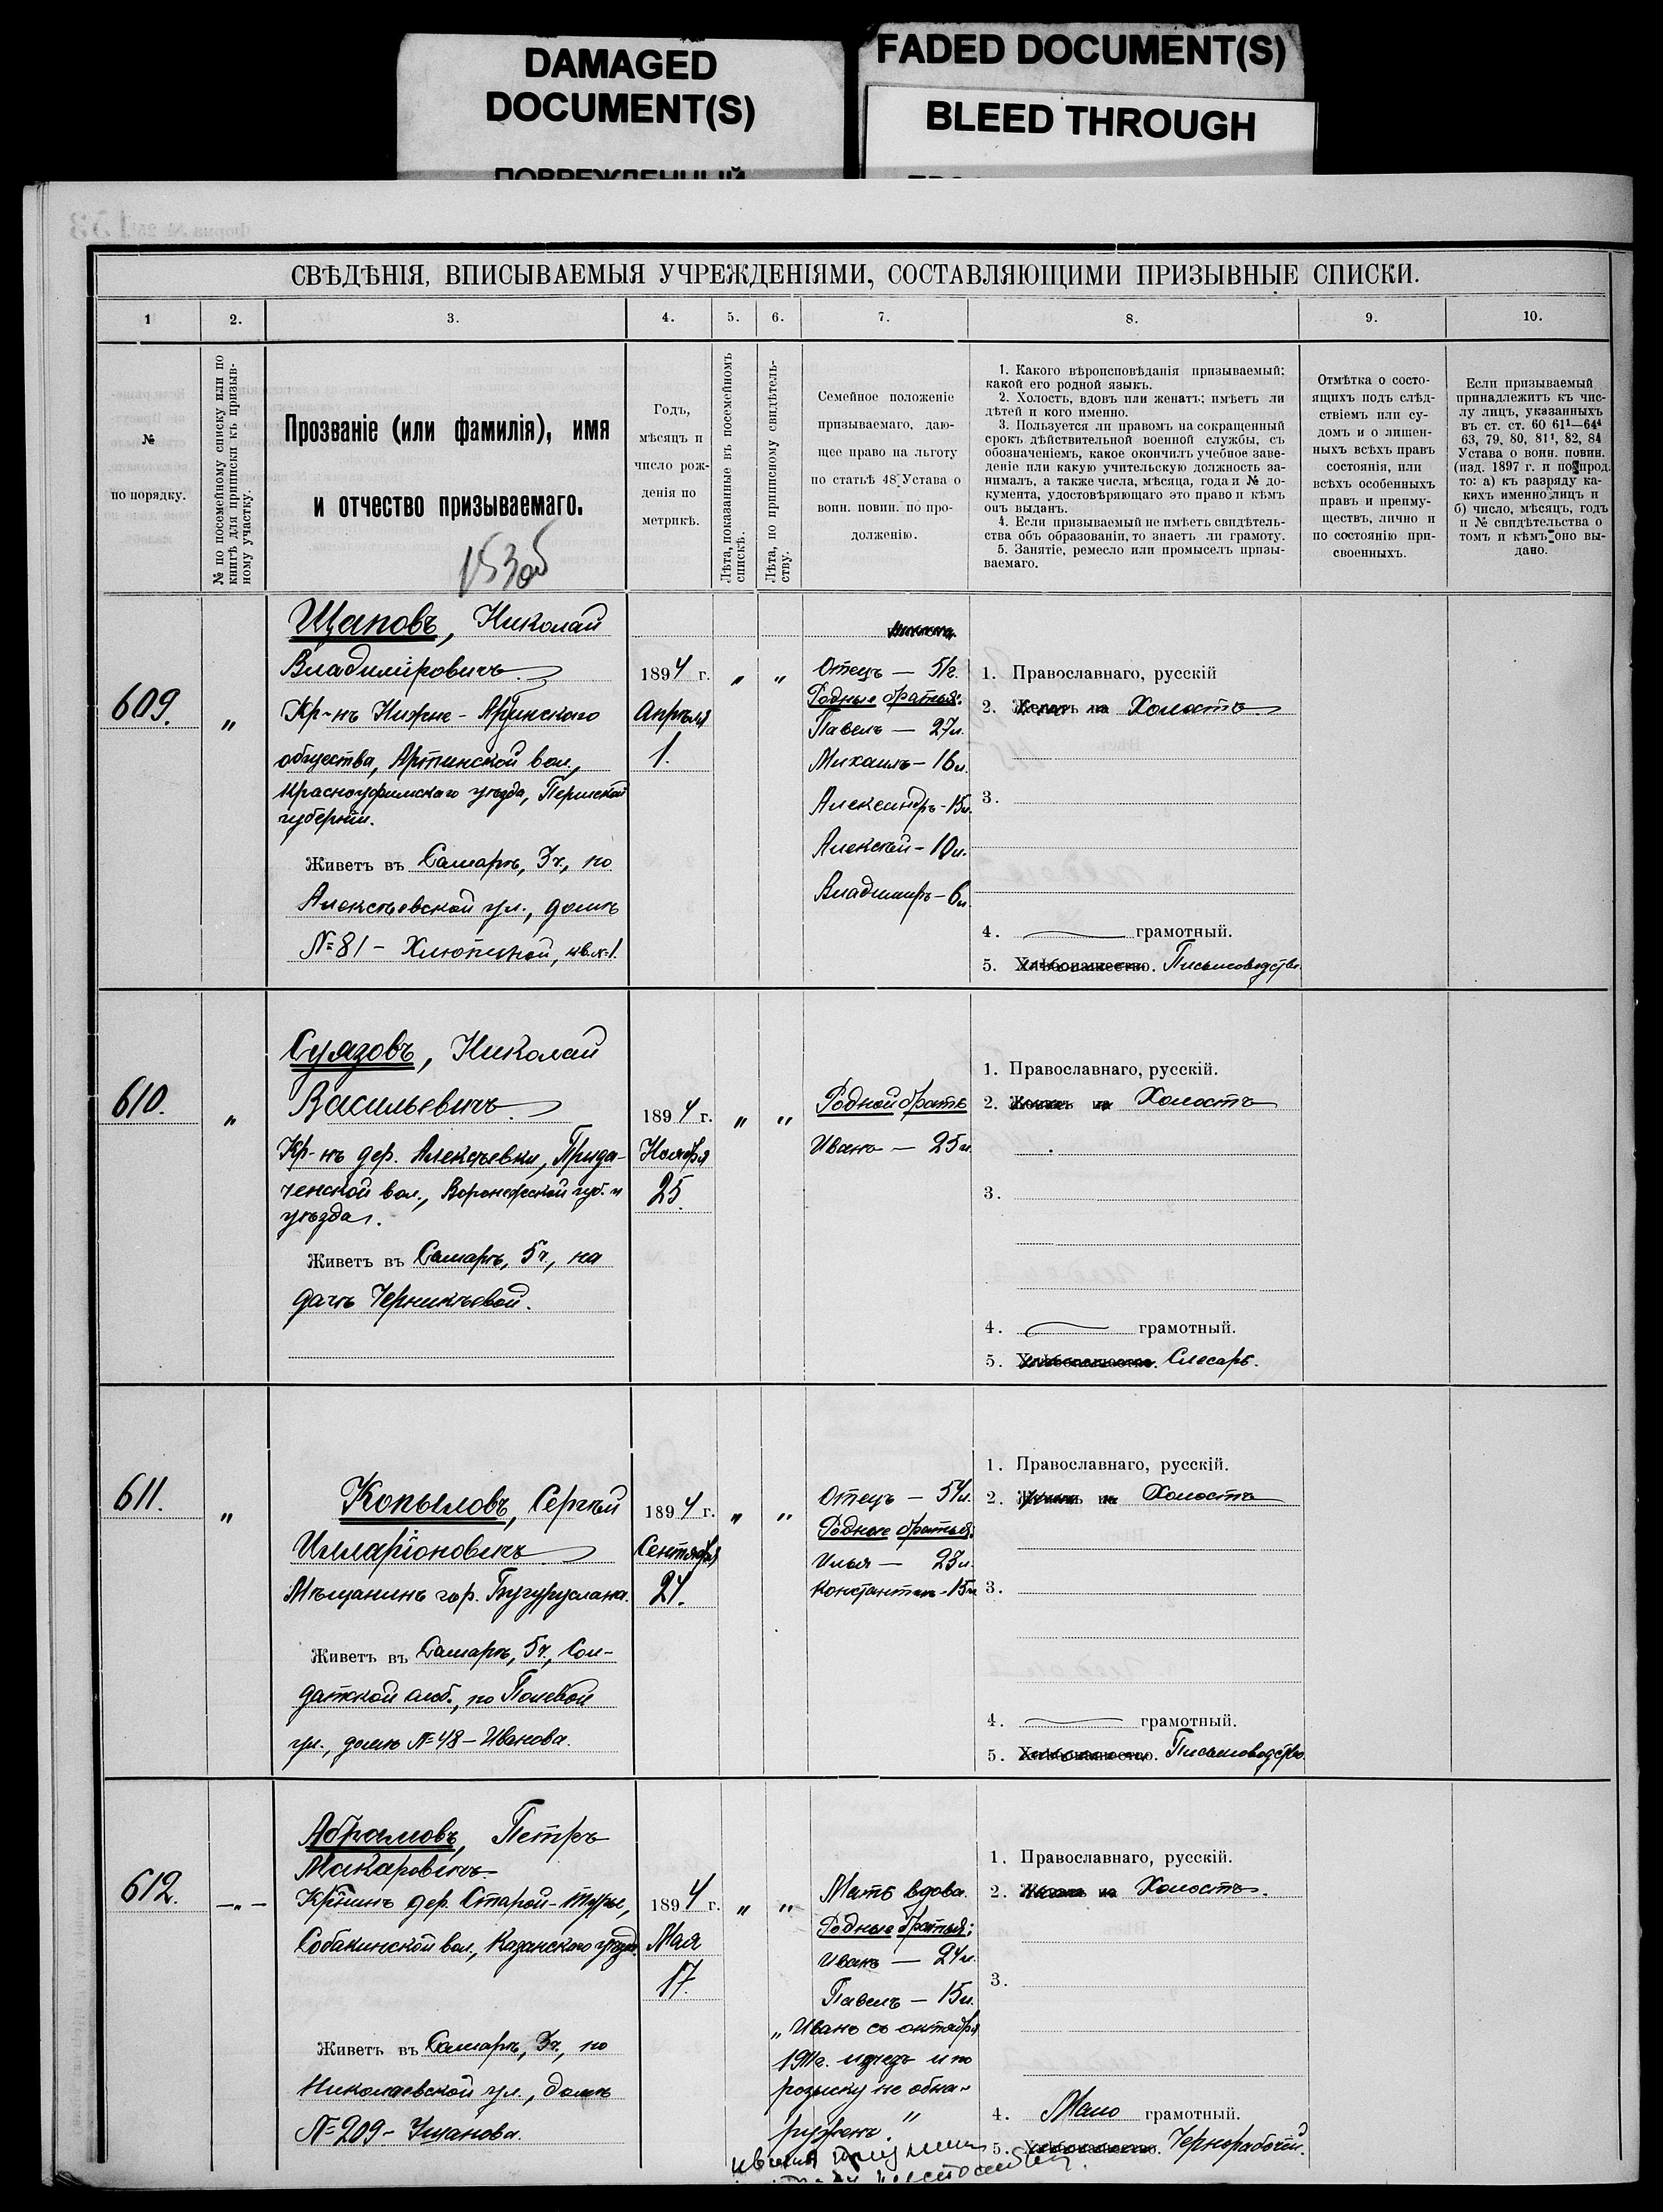 DAMAGED
DOCUMENT(S)
FADED DOCUMENT(S)
BLEED THROUGH
СВѢДѢНІЯ, ВПИСЫВАЕМЫЯ УЧРЕЖДЕНІЯМИ, СОСТАВЛЯЮЩИМИ ПРИЗЫВНЫЕ СПИСКИ.
1
2.
3.
4.
5.
6.
7.
8.
9.
10.
№
по порядку.
№ по посемейному списку или по
книгѣ для приписки къ призыв-
ному участку.
Прозваніе (или фамилія), имя
и отчество призываемаго.
153об
Годъ,
мѣсяцъ и
число рож-
денія по
метрикѣ.
Лѣта, показанные въ посемейномъ
спискѣ.
Лѣта, по приписному свидѣтель-
ству.
Семейное положеніе
призываемаго, даю-
щее право на льготу
по статьѣ 48 Устава о
воин. повин. по про-
долженію.
1. Какого вѣроисповѣданія призываемый;
какой его родной языкъ.
2. Холостъ, вдовъ или женатъ; имѣетъ ли
дѣтей и кого именно.
3. Пользуется ли правомъ на сокращенный
срокъ дѣйствительной военной службы, съ
обозначеніемъ, какое окончилъ учебное заве-
деніе или какую учительскую должность за-
нималъ, а также числа, мѣсяца, года и № до-
кумента, удостовѣряющаго это право и кѣмъ
онъ выданъ.
4. Если призываемый не имѣетъ свидѣтель-
ства объ образованіи, то знаетъ ли грамоту.
5. Занятіе, ремесло или промыселъ призы-
ваемаго.
Отмѣтка о состо-
ящихъ подъ слѣд-
ствіемъ или су-
домъ и о лишен-
ныхъ всѣхъ правъ
состоянія, или
всѣхъ особенныхъ
правъ и преиму-
ществъ, лично и
по состоянію при-
своенныхъ.
Если призываемый
принадлежитъ къ чис-
лу лицъ, указанныхъ
въ ст. ст. 60 61¹—64⁴
63, 79, 80, 81¹, 82, 84
Устава о воин. повин.
(изд. 1897 г. и по прод.
то: а) къ разряду ка-
кихъ именно лицъ и
б) число, мѣсяцъ, годъ
и № свидѣтельства о
томъ и кѣмъ оно вы-
дано.
609.
"
Щаповъ, Николай
Владиміровичъ
Кр-нъ Нижне-Аринскаго
общества, Артинской вол.,
Красноуфимскаго уѣзда, Пермской
губерніи.
Живетъ въ Самарѣ, 3ч., по
Алексѣевской ул., домъ
№ 81 - Хлюпиной, кв. № 1.
1894 г.
Апрѣля
1.
"
"
Отецъ — 51г.
Родные братья:
Павелъ — 27л.
Михаилъ — 16л.
Александръ - 15л.
Алексѣй - 10л.
Владиміръ - 6л.
1. Православнаго, русскій
2. Женатъ на Холостъ
3.
4. грамотный.
5. Хлѣбопашество. Письмоводство.
610.
"
Суязовъ, Николай
Васильевичъ
Кр-нъ дер. Алексѣевки, Прида-
ченской вол., Воронежской губ. и
уѣзда.
Живетъ въ Самарѣ, 5ч., на
дачѣ Черникѣевой.
1894 г.
Ноября
25.
"
"
Родной братъ
Иванъ — 25л.
1. Православнаго, русскій.
2. Женатъ на Холостъ
3.
4. грамотный.
5. Хлѣбопашество. Слесарь.
611.
"
Копыловъ, Сергѣй
Илларіоновичъ
Мѣщанинъ гор. Бугуруслана.
Живетъ въ Самарѣ, 5ч., Сол-
датской слоб., по Полевой
ул., домъ № 48 - Иванова.
1894 г.
Сентября
24.
"
"
Отецъ — 54л.
Родные братья:
Илья — 23л.
Константинъ - 15л.
1. Православнаго, русскій.
2. Женатъ на Холостъ
3.
4. грамотный.
5. Хлѣбопашество. Письмоводство.
612.
—"—
Абрамовъ, Петръ
Макаровичъ
Кр-нинъ дер. Старой-Турьи,
Собакинской вол., Казанскаго уѣзда.
Живетъ въ Самарѣ, 3ч., по
Николаевской ул., домъ
№ 209 - Уланова.
1894 г.
Мая
17.
"
"
Мать вдова.
Родные братья:
Иванъ — 24л.
Павелъ — 15л.
„Иванъ съ октября
1911г. и по
розыску не обна-
руженъ."
1. Православнаго, русскій.
2. Женатъ на Холостъ.
3.
4. Мало грамотный.
5. Хлѣбопашество. Чернорабочій.